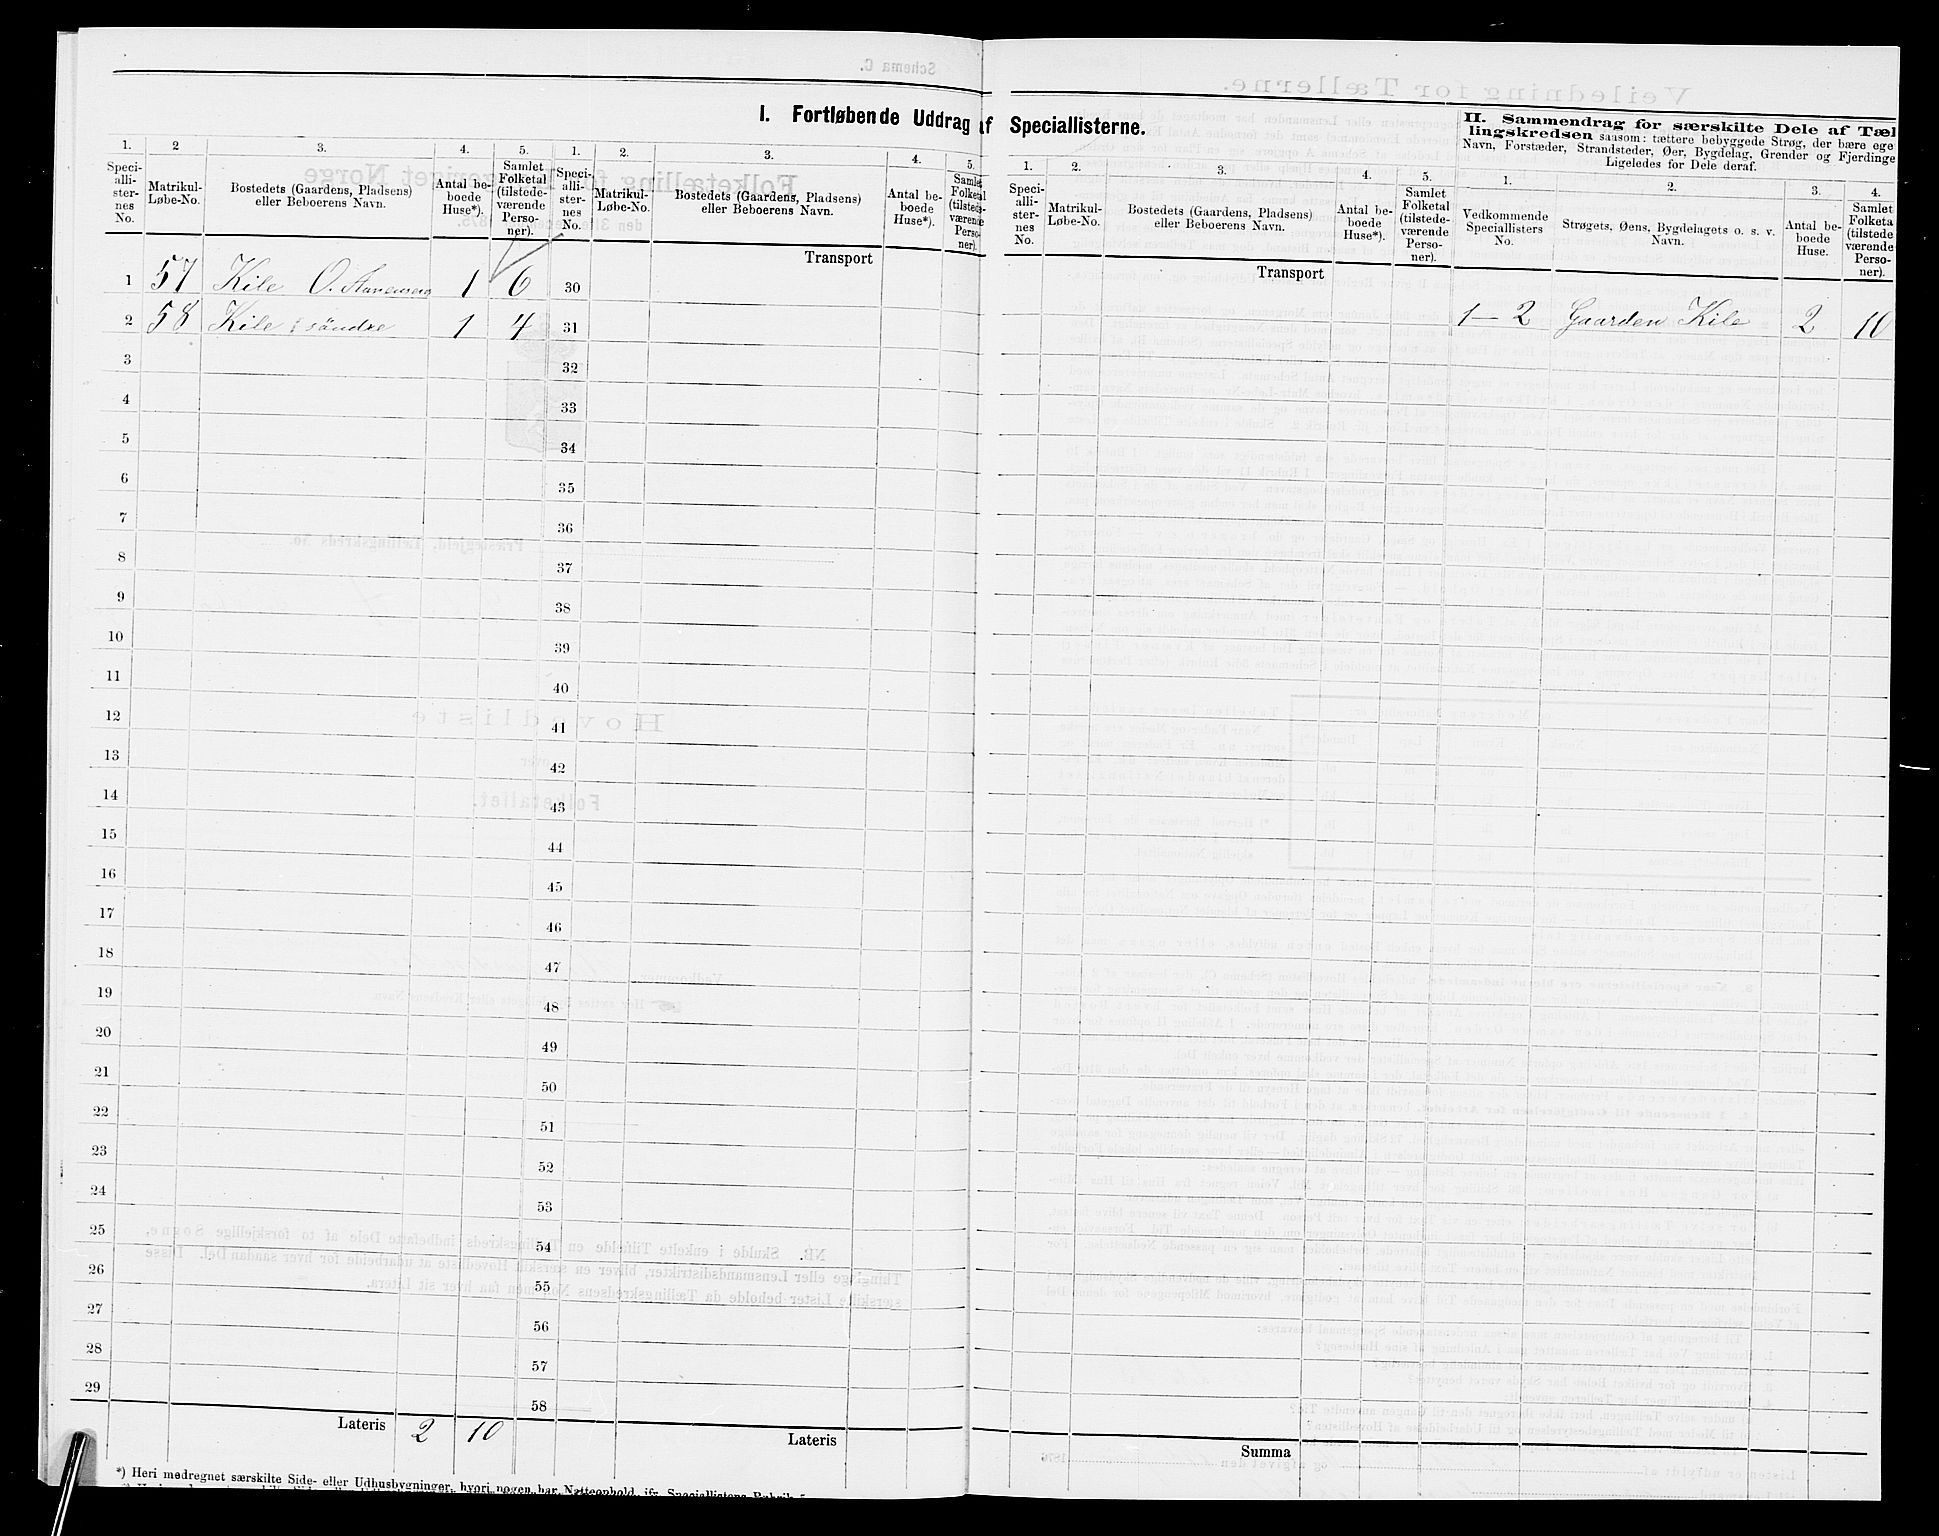 I. Fortløbende Uddrag af Speciallisterne.
1. 2 3. 4. 5. 1. 2. 3. 4. 5.
Speciallisternes No. Matrikul-Løbe-No. Bostedets (Gaardens, Pladsens) eller Beboerens Navn. Antal beboede Huse*). Samlet Folketal (tilstedeværende Personer).
Speciallisternes No. Matrikul-Løbe-No. Bostedets (Gaardens, Pladsens) eller Beboerens Navn. Antal beboede Huse*). Samlet Folketal (tilstedeværende Personer).
Transport
1 57 Kile O. 1 6 30
2 58 Kile söndre 1 4 31
3 32
4 33
5 34
6 35
7 36
8 37
9 38
10 39
11 40
12 41
13 42
14 43
15 44
16 45
17 46
18 47
19 48
20 49
21 50
22 51
23 52
24 53
25 54
26 55
27 56
28 57
29 58
Lateris 2 10 Lateris
*) Heri medregnet særskilte Side- eller Udhusbygninger, hvori nogen har Natteophold, jfr. Speciallistens Rubrik 5.
1. 2. 3. 4. 5.
Speciallisternes No. Matrikul-Løbe-No. Bostedets (Gaardens, Pladsens) eller Beboerens Navn. Antal beboede Huse*). Samlet Folketal (tilstedeværende Personer).
Transport
Summa
II. Sammendrag for særskilte Dele af Tæl
lingskredsen saasom: tættere bebyggede Strøg, der bære ege
Navn, Forstæder, Strandsteder, Øer, Bygdelag, Grender og Fjerdinge
Ligeledes for Dele deraf.
1. 2. 3. 4.
Vedkommende Speciallisters No. Strøgets, Øens, Bygdelagets o. s. v. Navn. Antal beboede Huse. Samlet Folketa (tilstede værende Personer).
1-2 Gaarden Kile 2 10